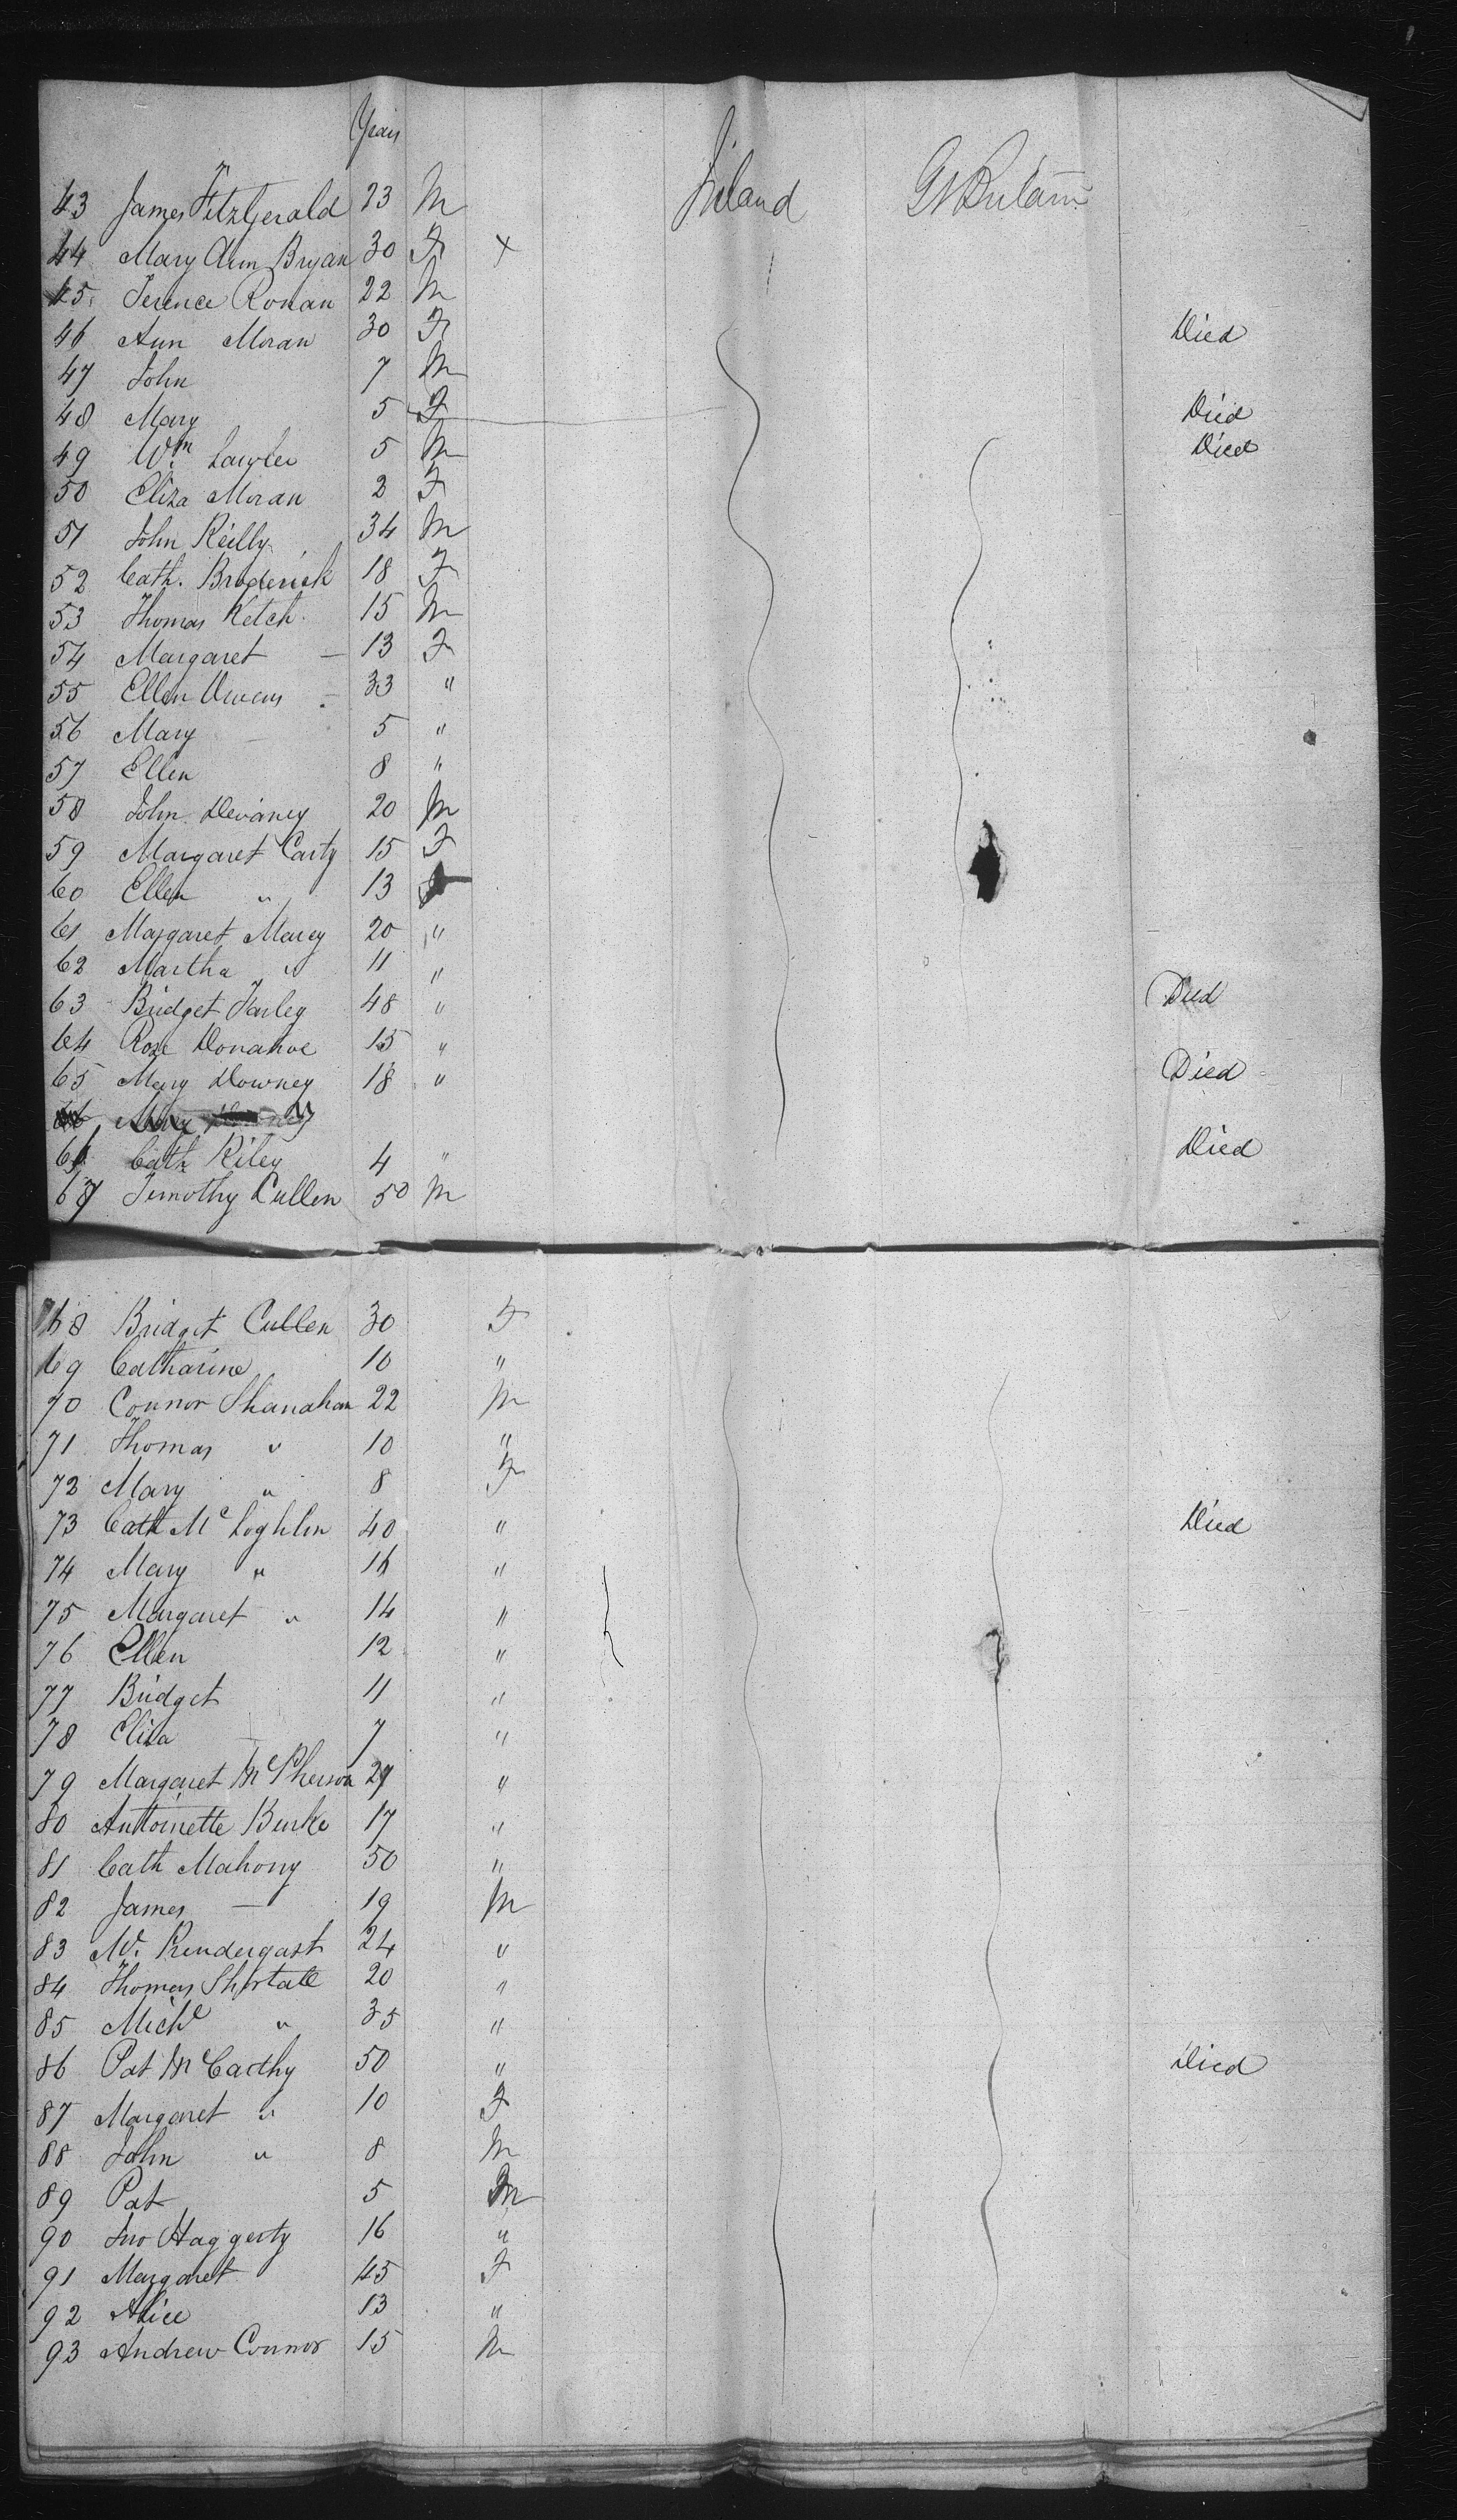 Years
43 James Fitzgerald 23 M Ireland Gt Britain
44 Mary Ann Bryan 30 F x
45 Terence Ronan 22 M
46 Ann Moran 30 F Died
47 John 7 M
48 Mary 5 F Died
49 Wm Lawler 5 M Died
50 Eliza Moran 2 F
51 John Reilly 34 M
52 Cath. Broderick 18 F
53 Thomas Ketch 15 M
54 Margaret — 13 F
55 Ellen Owens 33 "
56 Mary 5 "
57 Ellen 8 "
58 John Devaney 20 M
59 Margaret Carty 15 F
60 Ellen " 13
61 Margaret Marcy 20 "
62 Martha " 11 "
63 Bridget Farley 48 " Died
64 Rose Donahoe 15 "
65 Mary Downey 18 " Died
66 Mary
Cath Riley 4 " Died
67 Timothy Cullen 50 M
68 Bridget Cullen 30 F
69 Catharine 10 "
70 Connor Shanahan 22 M
71 Thomas " 10 "
72 Mary " 8 F
73 Cath McLoghlin 40 " Died
74 Mary " 16 "
75 Margaret " 14 "
76 Ellen 12 "
77 Bridget 11 "
78 Eliza 7 "
79 Margaret McPherson 29 "
80 Antoinette Burke 17 "
81 Cath Mahony 50 "
82 James — 19 M
83 W. Prendergast 24 "
84 Thomas Shortall 20 "
85 Michl " 35 "
86 Pat McCarthy 50 " Died
87 Margaret " 10 F
88 John " 8 M
89 Pat 5 M
90 Jno Haggerty 16 "
91 Margaret 45 F
92 Alice 13 "
93 Andrew Connor 15 M